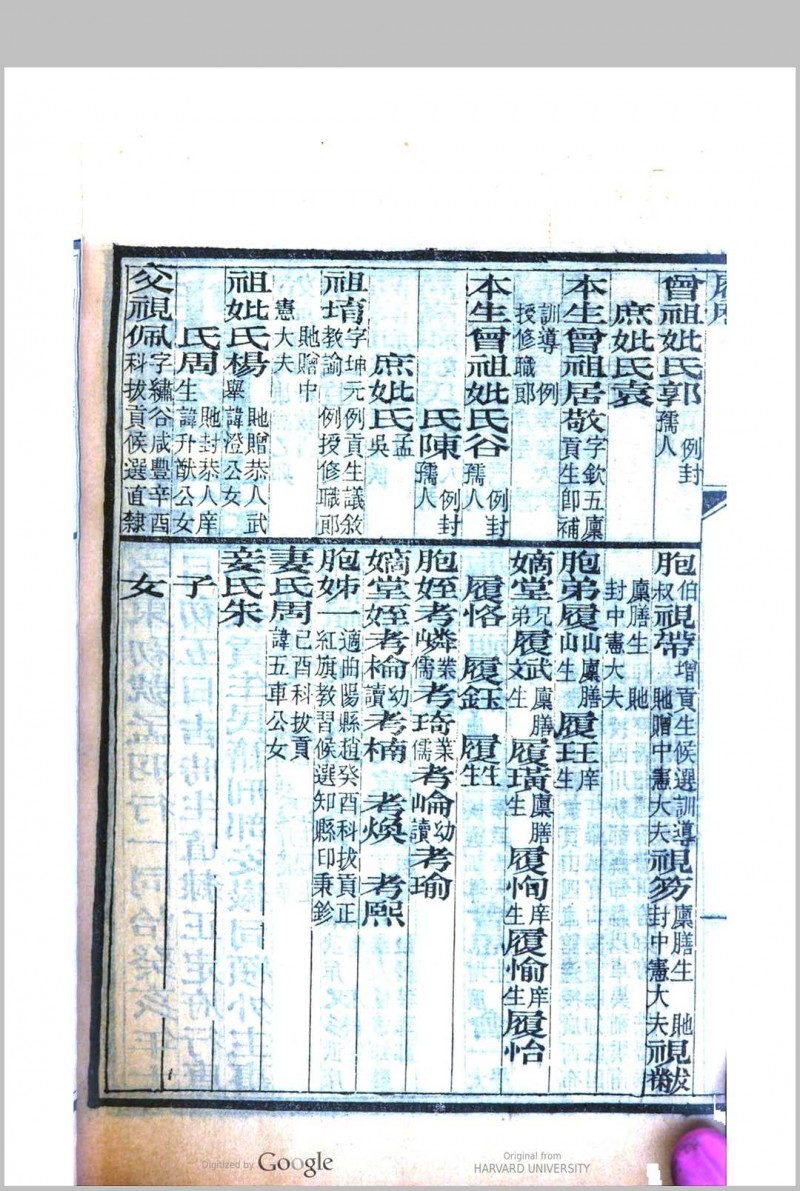 曾祖妣氏郭例封孺人
庶妣氏袁
本生曾祖居敬字欽五廩貢生卽補
訓導例授修職郎
本生曾祖妣氏谷例封孺人
氏陳例封孺人
庶妣氏孟吳
祖堉字坤元例貢生議敘教諭例授修職郎
貤贈中憲大夫
祖妣氏楊貤贈恭人武舉諱澄公女
氏周貤封恭人庠生諱升猷公女
父視佩字繡谷咸豐辛酉科拔貢候選直隸
胞伯叔視帶增貢生候選訓導貤贈中憲大夫視笏廩膳生貤封中憲大夫視黻
廩膳生貤封中憲大夫
胞弟履山廩膳生履玨庠生
嫡堂兄弟履斌廩膳生履璜廩膳生履恂庠生履愉庠生履怡
履恪 履鈺 履
胞姪考嶙業儒考琦業儒考崘幼讀考瑜
嫡堂姪考棆幼讀考楠 考煥 考熙
胞姊一適曲陽縣趙癸酉科拔貢正紅旗教習候選知縣印秉鉁
妻氏周己酉科拔貢諱五車公女
妾氏朱
子
女
Digitized by Google
Original from
HARVARD UNIVERSITY